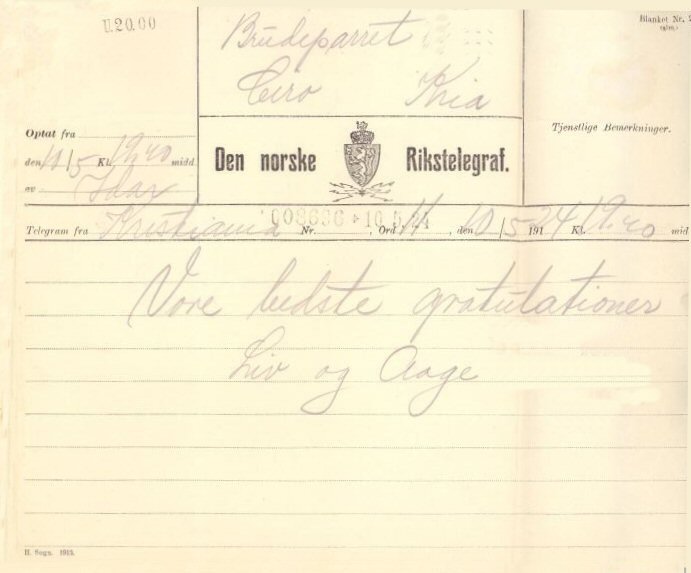 U.20.00
Blanket Nr. 2
Brudeparret
Ciro Kria
Optat fra
den 10/5 Kl. 19,40 midd
av
Tjenstlige Bemerkninger.
Den norske Rikstelegraf.
Telegram fra Kristiania Nr. 008696 * 10.5.24, Ord 11, den 10/5 191 24 Kl. 19.40 mid
Vore bedste gratulationer
Liv og Aage
H. Sogn. 1915.